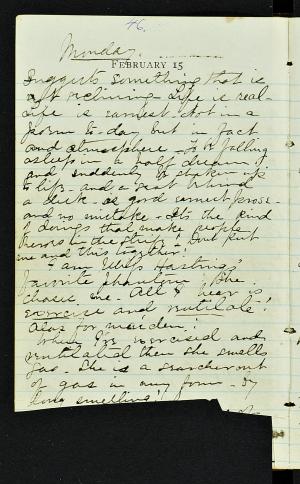 46.
Monday.
FEBRUARY 15
Suggests something that is
reclining. Life is real -
Life is earnest. Not in a
poem to-day but in fact
and atmosphere - As if falling
asleep in a half dreaming
and suddenly shaken up
to life - and a seat behind
a desk - as good earnest prose -
and no mistake - It's the kind
of doings that make people
in the - Don't put
me and this together!
I am Hastings'
favorite phantom She
chases me. All I hear is
exercise and ventilate!
Alas for maiden!
When I've exercised and
ventilated then she smells
gas. She is a searcher out
of gas in any form - by
long smelling!